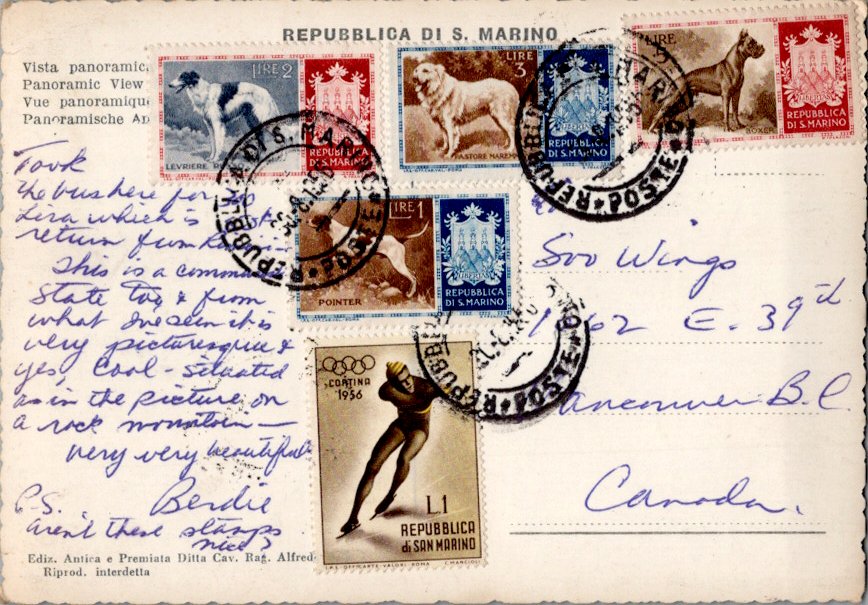 REPUBBLICA DI S. MARINO
Vista panoramic
Panoramic View
Vue panoramique
Panoramische An
LIRE 2
LEVRIERE
REPUBBLICA
DI S. MARINO
LIRE
3
PASTORE MAREM
REPUBBLICA
DI S. MARINO
LIRE
5
BOXER
REPUBBLICA
DI S. MARINO
LIRE 1
POINTER
LIBERTAS
REPUBBLICA
DI S. MARINO
CORTINA
1956
L.1
REPUBBLICA
di SAN MARINO
I.P.S. OFFICINA CARTE VALORI ROMA
REPUBBLICA DI S. MARINO
POSTE
REPUBBLICA
MARINO
POSTE
REPUBBLI
POSTE
Took
the bus here for
lira which is
return from
This is a commun
State too & from
what I've seen it is
very picturesque &
yes, cool - situated
as in the picture on
a rock mountain —
very very beautiful
Berdie
P.S.
aren't these stamps
nice?
Soo Wings
62 E. 39th
ancouver B.C.
Canada.
Ediz. Antica e Premiata Ditta Cav. Rag. Alfred
Riprod. interdetta